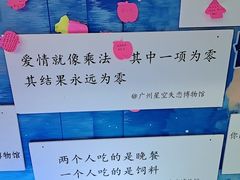 爱情就像乘法 其中一项为零
其结果永远为零
@广州星空失恋博物馆
博物馆
两个人吃的是晚餐
一个人吃的是饲料